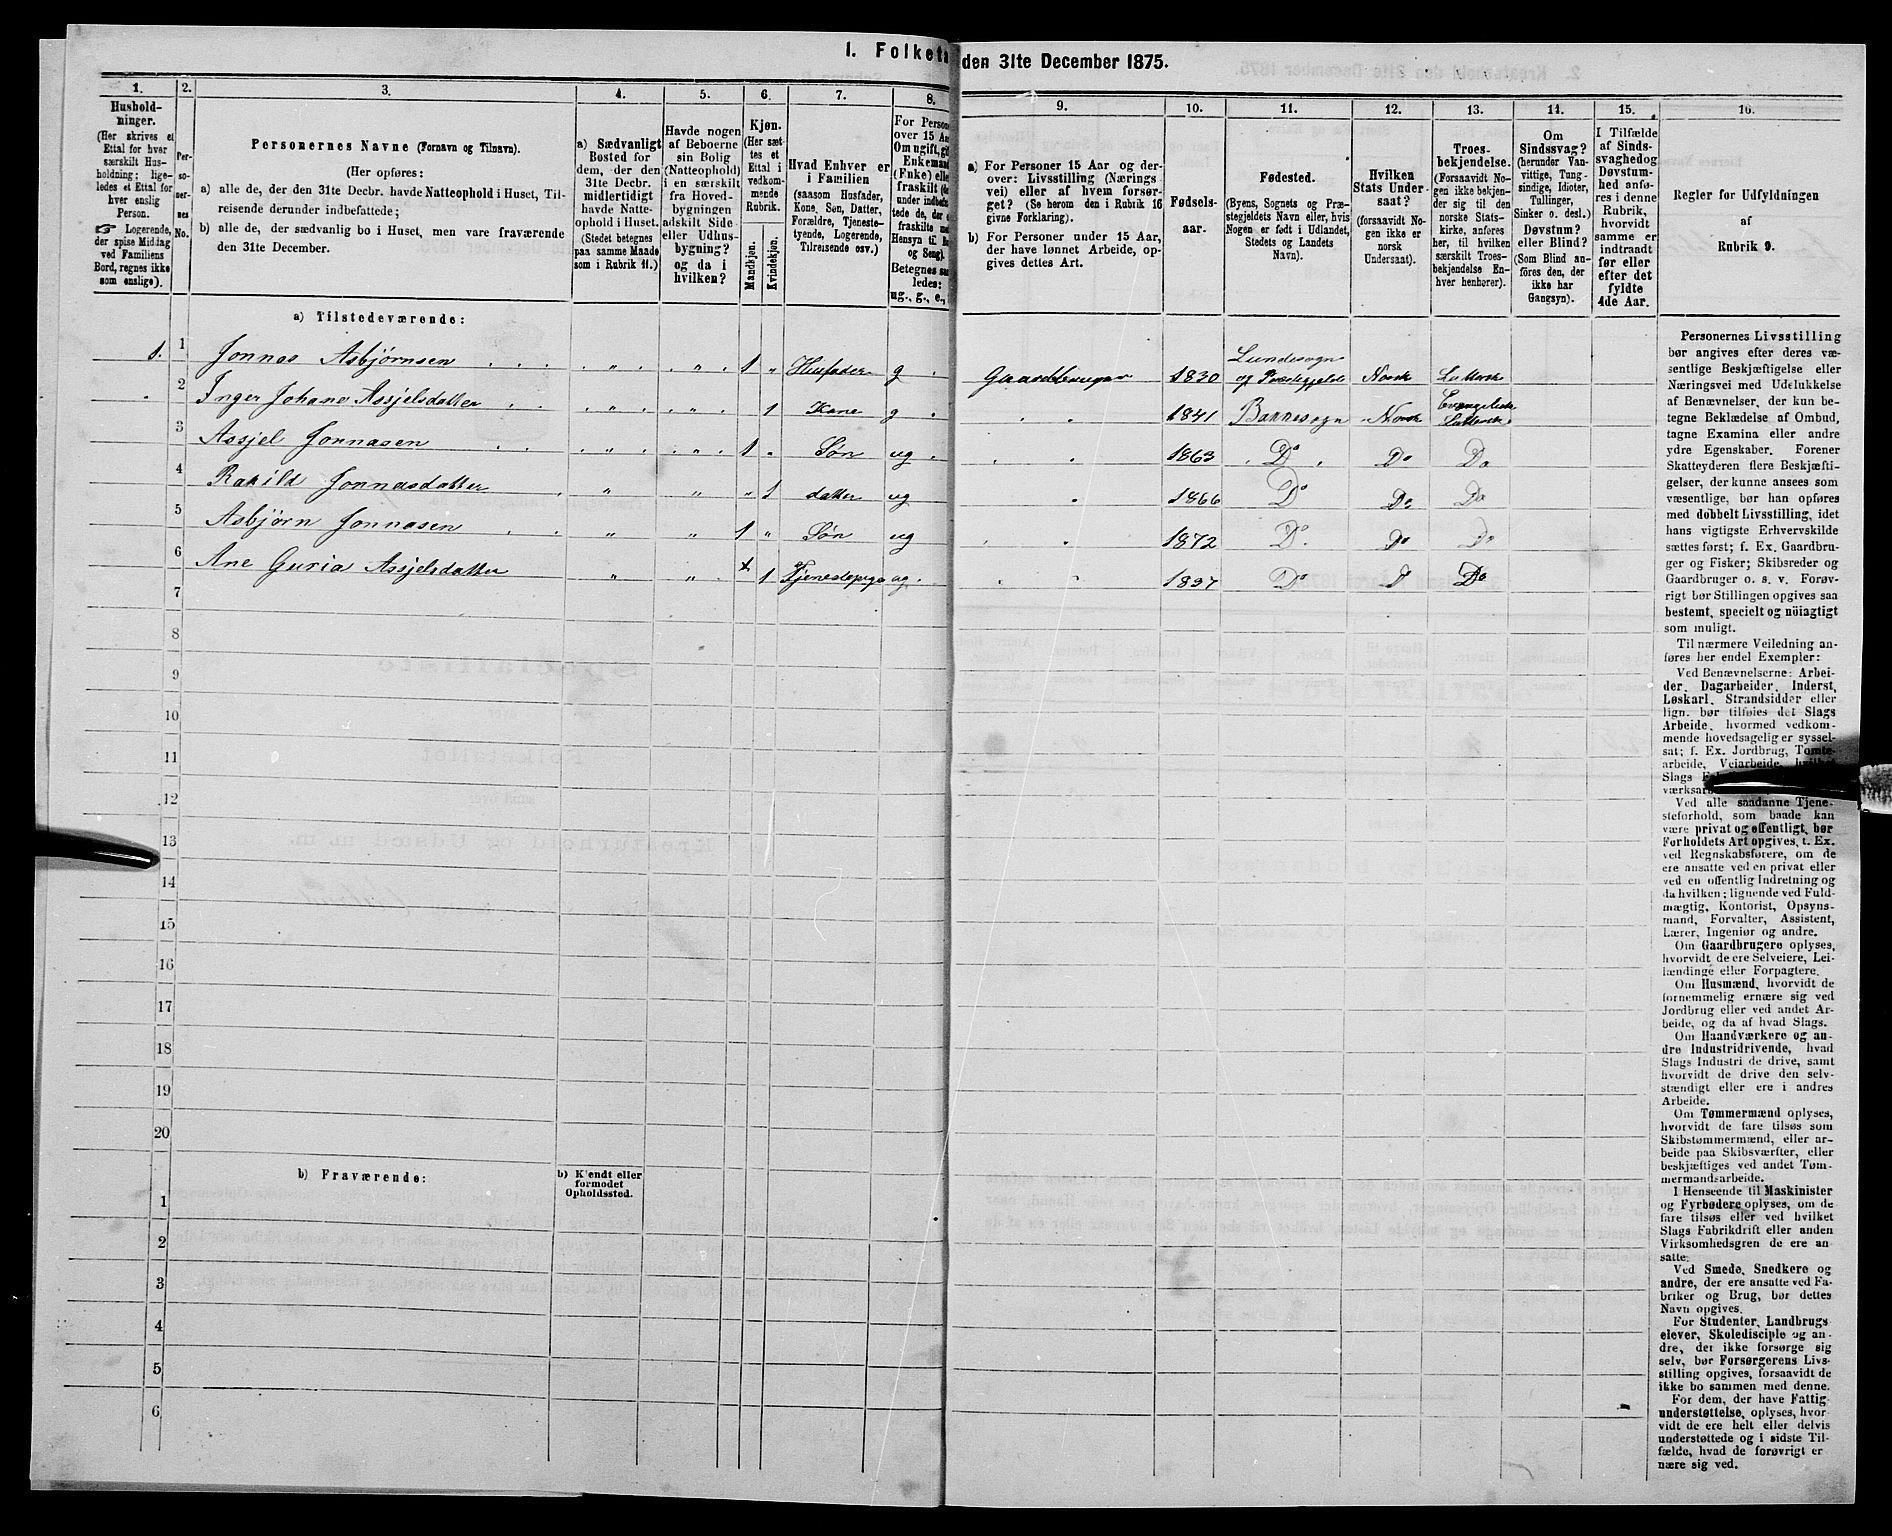 I. Folketæ
den 31te December 1875.
1.
Hushold-
ninger.
(Her skrives et
Ettal for hver
særskilt Hus-
holdning; lige-
ledes et Ettal for
hver enslig
Person.
☞ Logerende,
der spise Middag
ved Familiens
Bord, regnes ikke
som enslige).
2.
Per-
so-
ner-
nes
No.
3.
Personernes Navne (Fornavn og Tilnavn).
(Her opføres:
a) alle de, der den 31te Decbr. havde Natteophold i Huset, Til-
reisende derunder indbefattede;
b) alle de, der sædvanlig bo i Huset, men vare fraværende
den 31te December.
4.
a) Sædvanligt
Bosted for
dem, der den
31te Decbr.
midlertidigt
havde Natte-
ophold i Huset.
(Stedet betegnes
paa samme Maade
som i Rubrik 11.)
5.
Havde nogen
af Beboerne
sin Bolig
(Natteophold)
i en særskilt
fra Hoved-
bygningen
adskilt Side-
eller Udhus-
bygning?
og da i
hvilken?
6.
Kjøn.
(Her sæt-
tes et
Ettal i
vedkom-
mende
Rubrik.
Mandkjøn.
Kvindekjøn.
7.
Hvad Enhver er
i Familien
(saasom Husfader,
Kone, Søn, Datter,
Forældre, Tjeneste-
tyende, Logerende,
Tilreisende osv.)
8.
For Person
over 15 Aa
Om ugift, gif
Enkemand
(Enke) elle
fraskilt (de
under indbefat-
tede de, der er
fraskilte med
Hensyn til Bo
og Seng).
Betegnes saa
ledes:
ug., g., e.,
9.
a) For Personer 15 Aar og der-
over: Livsstilling (Nærings
vei) eller af hvem forsør-
get? (Se herom den i Rubrik 16
givne Forklaring).
b) For Personer under 15 Aar,
der have lønnet Arbeide, op-
gives dettes Art.
10.
Fødsels-
aar.
11.
Fødested.
(Byens, Sognets og Præ-
stegjeldets Navn eller, hvis
Nogen er født i Udlandet,
Stedets og Landets
Navn).
12.
Hvilken
Stats Under-
saat?
(forsaavidt No-
gen ikke er
norsk
Undersaat).
13.
Troes-
bekjendelse.
(Forsaavidt No-
gen ikke bekjen-
der sig til den
norske Stats-
kirke, anføres
her, til hvilken
særskilt Troes-
bekjendelse En-
hver henhører).
14.
Om
Sindssvag?
(herunder Van-
vittige, Tung-
sindige, Idioter,
Tullinger,
Sinker o. desl.)
Døvstum?
eller Blind?
(Som Blind an-
føres den, der
ikke har
Gangsyn).
15.
I Tilfælde
af Sinds-
svaghedog
Døvstum-
hed anfø-
res i denne
Rubrik,
hvorvidt
samme er
indtraadt
før eller
efter det
fyldte
4de Aar.
16.
Regler for Udfyldningen
af
Rubrik 9.
a) Tilstedeværende:
1. 1 Jonnas Asbjørnsen . „ . . „ . 1 „ Husfader g . Gaardbruger 1830 Lundesogn og Præstegjeld Norsk Luttersk
2 Inger Johane Assjelsdatter . „ . . „ . „ 1 Kone g . „ „ 1841 Bakkesogn Norsk Evangelisk Luttersk
3 Assjel Jonnasen . „ . . „ . 1 „ Søn ug . „ „ 1863 Do Do Do
4 Rakild Jonnasdatter „ „ „ 1 datter ug „ 1866 Do Do Do
5 Asbjørn Jonnasen „ „ 1 „ Søn ug „ „ 1872 Do Do Do
6 Ane Guria Assjelsdatter „ „ 1 Tjenestepige ug. „ „ 1837 Do Do Do
7
8
9
10
11
12
13
14
15
16
17
18
19
20
b) Fraværende:
b) Kjendt eller
formodet
Opholdssted.
1
2
3
4
5
6
Personernes Livsstilling
bør angives efter deres væ-
sentlige Beskjæftigelse eller
Næringsvei med Udelukkelse
af Benævnelser, der kun be-
tegne Beklædelse af Ombud,
tagne Examina eller andre
ydre Egenskaber. Forener
Skatteyderen flere Beskjæfti-
gelser, der kunne ansees som
væsentlige, bør han opføres
med dobbelt Livsstilling, idet
hans vigtigste Erhvervskilde
sættes først; f. Ex. Gaardbru-
ger og Fisker; Skibsreder og
Gaardbruger o. s. v. Forøv-
rigt bør Stillingen opgives saa
bestemt, specielt og nöiagtigt
som muligt.
Til nærmere Veiledning an-
føres her endel Exempler:
Ved Benævnelserne: Arbei-
der, Dagarbeider, Inderst,
Løskarl, Strandsidder eller
lign. bør tilføies det Slags
Arbeide, hvormed vedkom-
mende hovedsagelig er syssel-
sat; f. Ex. Jordbrug, Tomte-
arbeide, Veiarbeide, hvilket
Slags
værksar
Ved alle saadanne Tjene-
steforhold, som baade kan
være privat og offentligt, bør
Forholdets Art opgives, t. Ex.
ved Regnskabsførere, om de
ere ansatte ved en privat eller
ved en offentlig Indretning og
da hvilken; lignende ved Fuld-
mægtig, Kontorist, Opsyns-
mand, Forvalter, Assistent,
Lærer, Ingeniør og andre.
Om Gaardbrugere oplyses,
hvorvidt de ere Selveiere, Lei-
lændinge eller Forpagtere.
Om Husmænd, hvorvidt de
fornemmelig ernære sig ved
Jordbrug eller ved andet Ar-
beide, og da af hvad Slags.
Om Haandværkere og an-
dre Industridrivende, hvad
Slags Industri de drive, samt
hvorvidt de drive den selv-
stændigt eller ere i andres
Arbeide.
Om Tømmermænd oplyses,
hvorvidt de fare tilsøs som
Skibstømmermænd, eller ar-
beide paa Skibsværfter, eller
beskjæftiges ved andet Tøm-
mermandsarbeide.
I Henseende til Maskinister
og Fyrbødere oplyses, om de
fare tilsøs eller ved hvilket
Slags Fabrikdrift eller anden
Virksomhedsgren de ere an-
satte.
Ved Smede, Snedkere og
andre, der ere ansatte ved Fa-
briker og Brug, bør dettes
Navn opgives.
For Studenter, Landbrugs-
elever, Skoledisciple og an-
dre, der ikke forsørge sig
selv, bør Forsørgerens Livs-
stilling opgives, forsaavidt de
ikke bo sammen med denne.
For dem, der have Fattig-
understøttelse, oplyses, hvor-
vidt de ere helt eller delvis
understøttede og i sidste Til-
fælde, hvad de forøvrigt er-
nære sig ved.